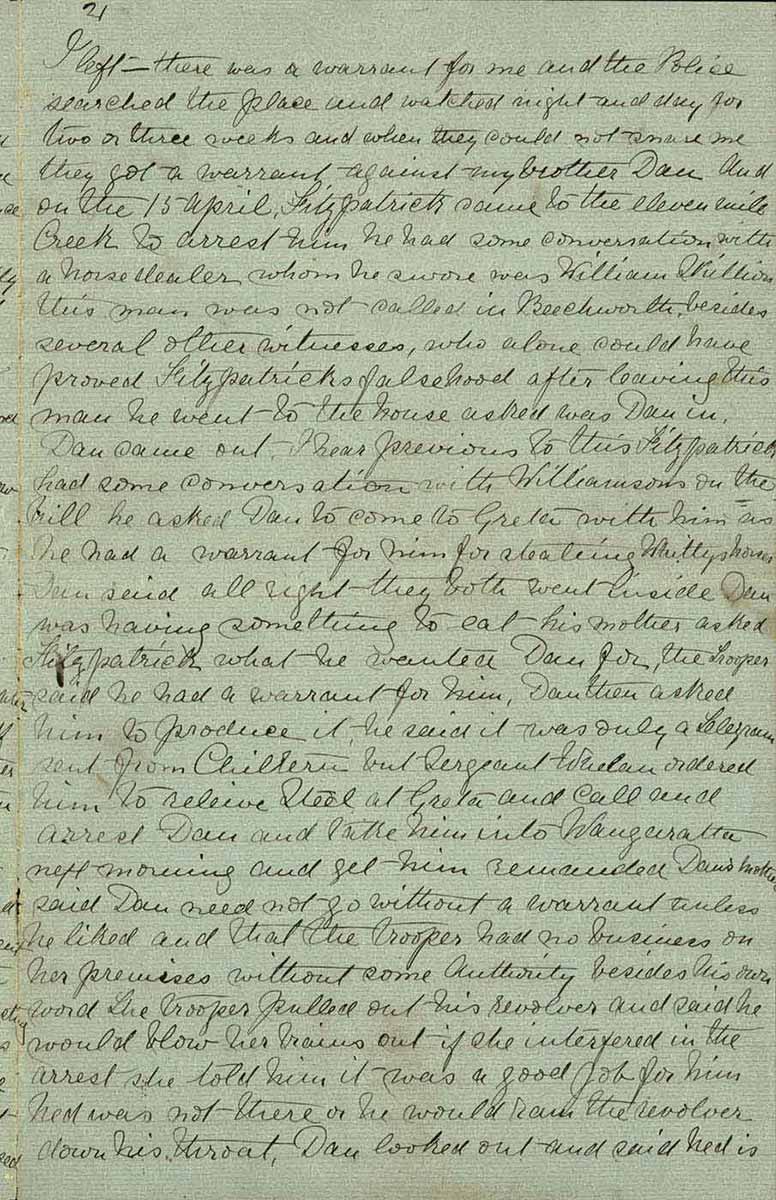 21
I left — there was a warrant for me and the Police
searched the place and watched night and day for
two or three weeks and when they could not snare me
they got a warrant against my brother Dan And
on the 15 April, Fitzpatrick came to the eleven mile
Creek to arrest him he had some conversation with
a horse dealer whom he swore was William Skillion
this man was not called in Beechworth, besides
several other witnesses, who alone could have
proved Fitzpatricks falsehood after leaving this
man he went to the house asked was Dan in.
Dan came out. I hear previous to this Fitzpatrick
had some conversation with Williamsons on the
hill he asked Dan to come to Greta with him as
he had a warrant for him for stealing Whittys horses
Dan said all right they both went inside Dan
was having something to eat his mother asked
Fitzpatrick what he wanted Dan for, the Trooper
said he had a warrant for him, Dan then asked
him to produce it, he said it was only a telegram
sent from Chiltern but Sergeant Whelan ordered
him to releive Steel at Greta and call and
arrest Dan and take him into Wangaratta
next morning and get him remanded Dans mother
said Dan need not go without a warrant unless
he liked and that the trooper had no business on
her premises without some Authority besides his own
word The trooper pulled out his revolver and said he
would blow her brains out if she interfered in the
arrest she told him it was a good job for him
Ned was not there or he would ram the revolver
down his throat, Dan looked out and said Ned is